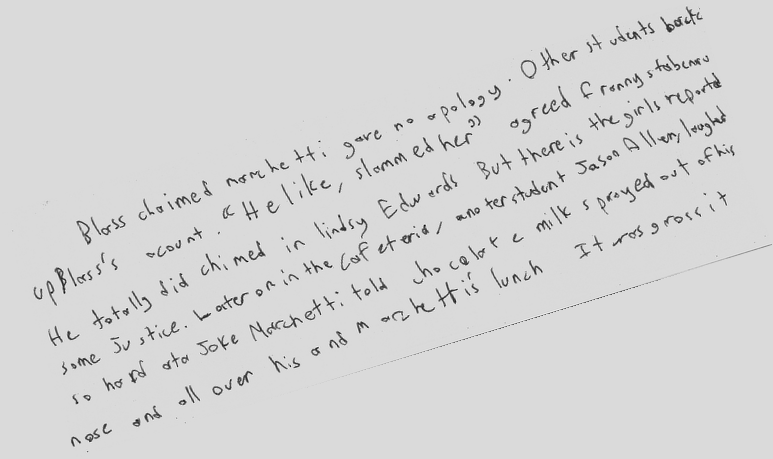 Blass chaimed marchetti gave no apology. Other students back
up Blass's acount. "He like, slammed her" agreed franny stabenau
He totally did chimed in lindsy Edwards But there is the girls reported
some Justice. Later on in the Cafeteria, anoter student Jason Allen, laughed
so hard ata Joke Marchetti told chocolate milk sprayed out of his
nose and all over his and marchetti's lunch It was gross it